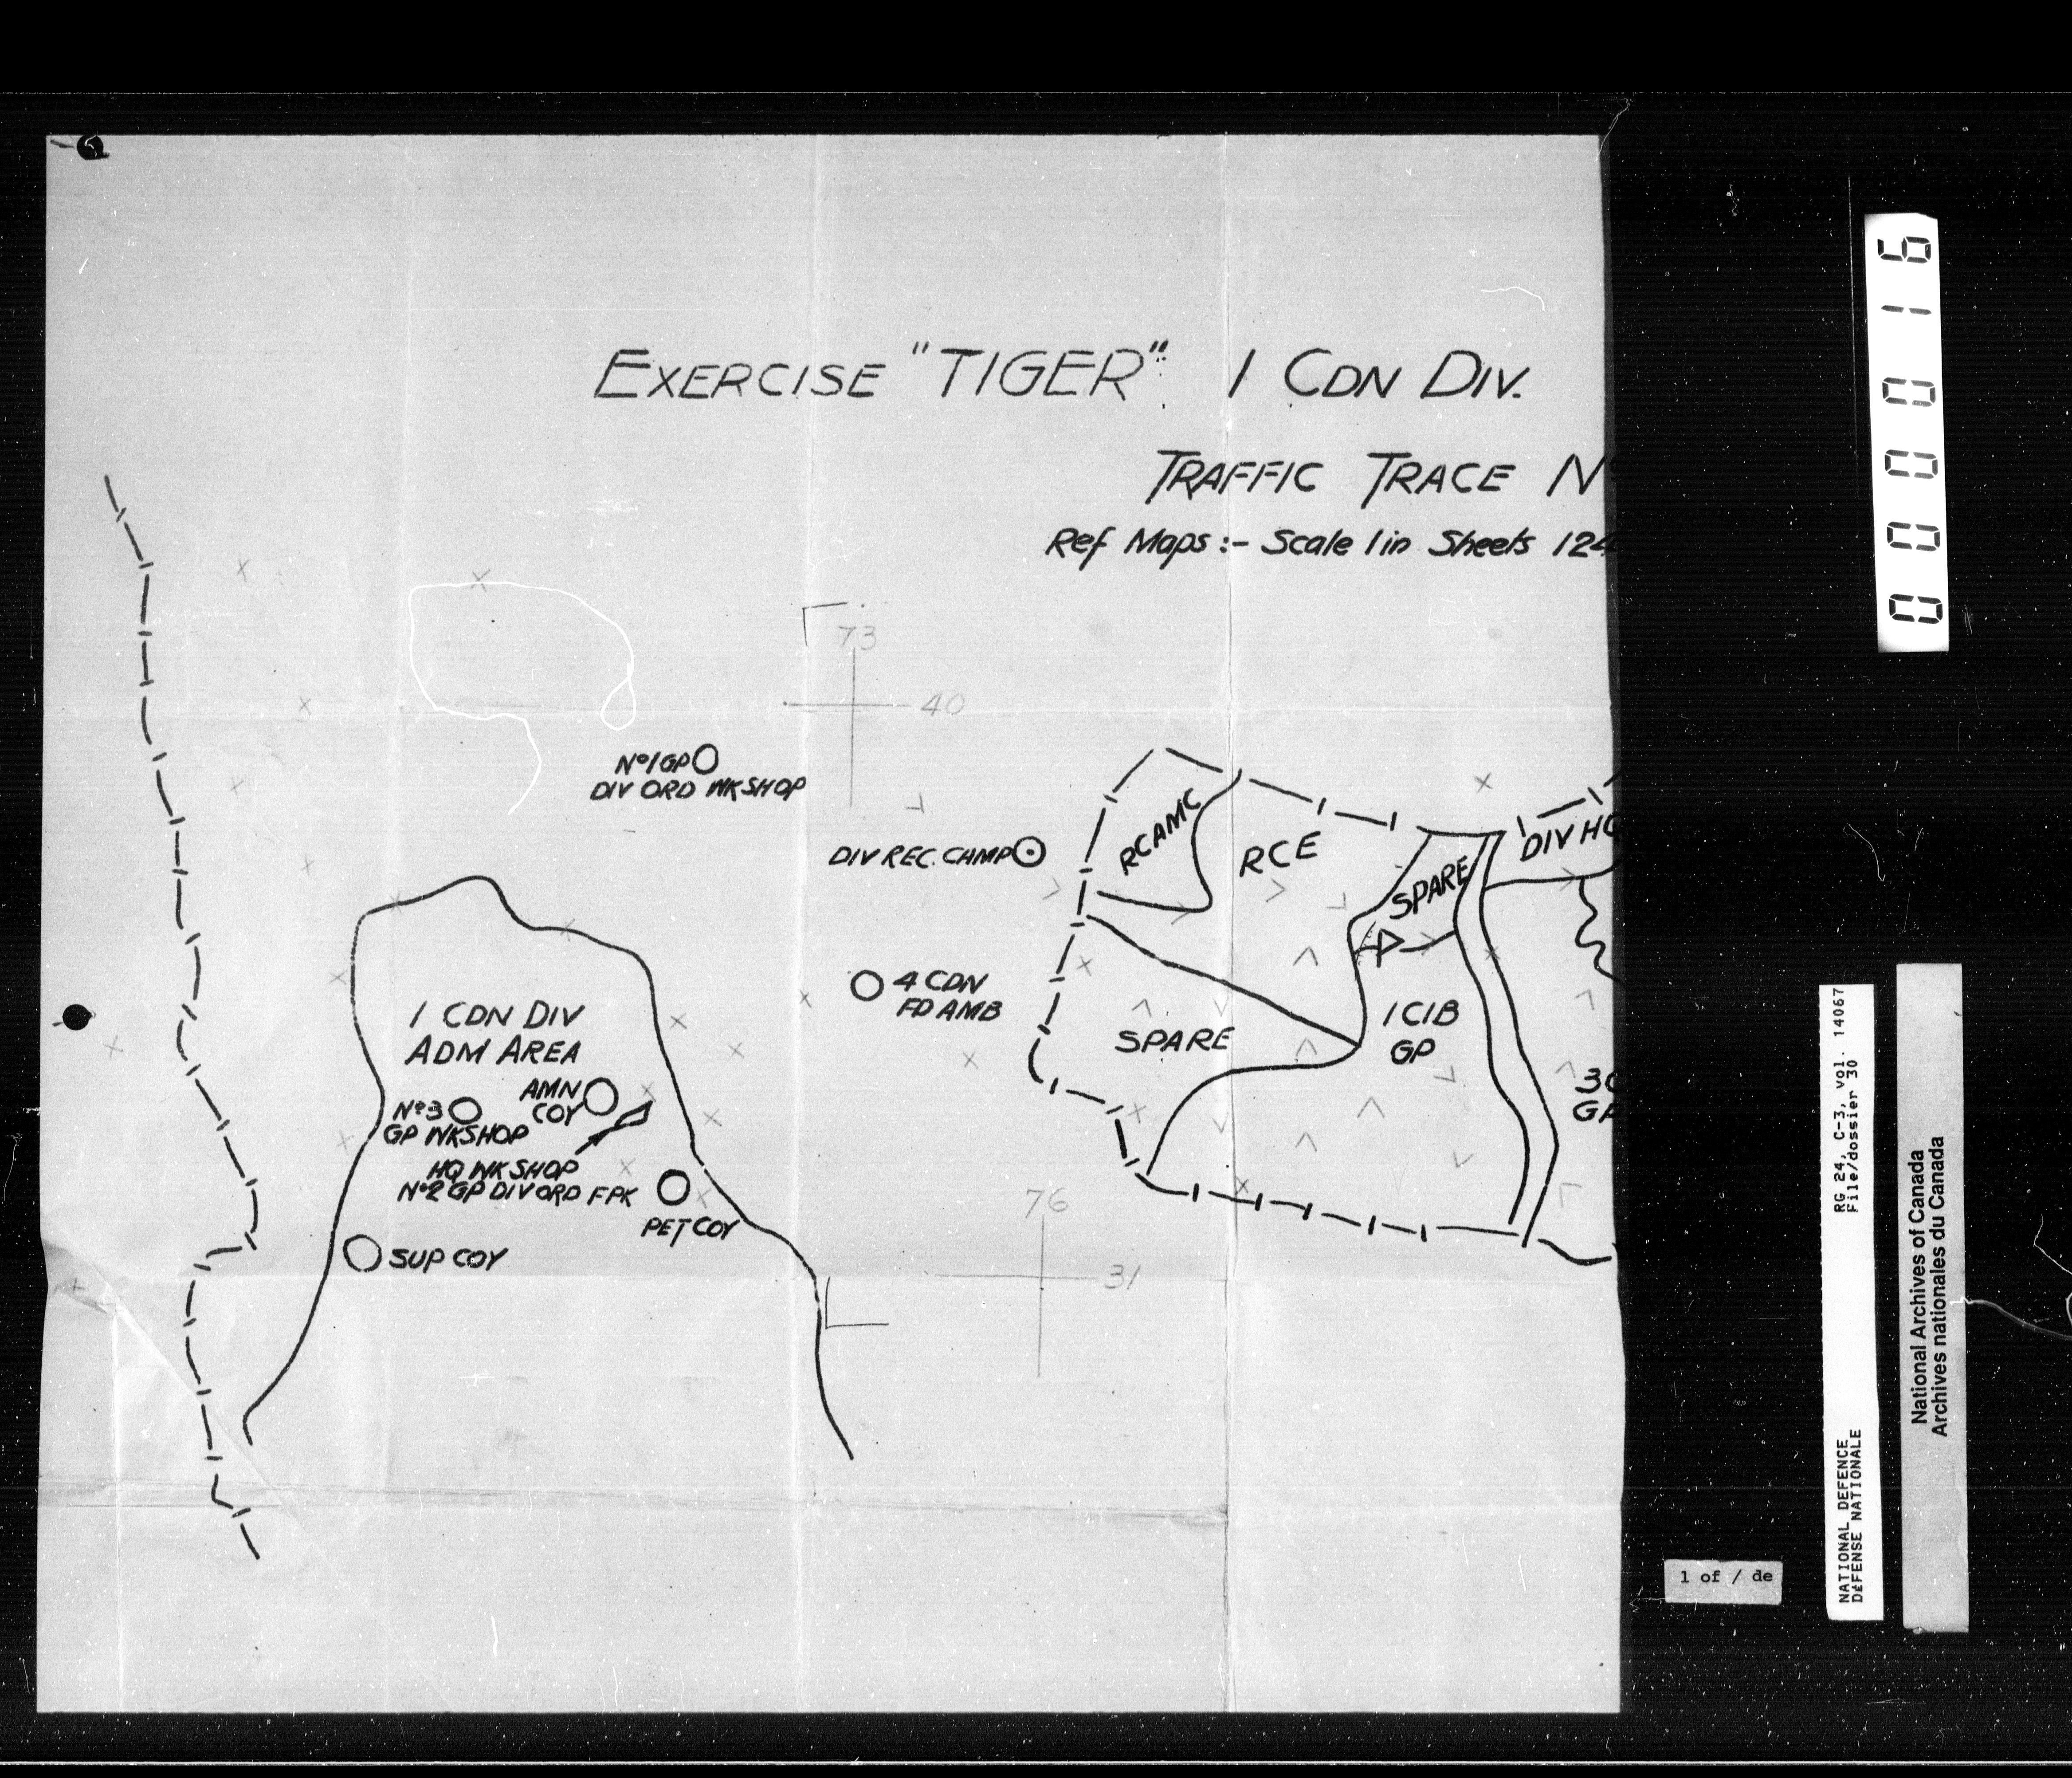 EXERCISE "TIGER" 1 CDN DIV.
TRAFFIC TRACE
Ref Maps :- Scale 1 in Sheets 124
73
40
Nº1 GP
DIV ORD WKSHOP
DIV REC. CAMP
RCAMC
RCE
SPARE
DIV HQ
4 CDN
FD AMB
SPARE
1 CIB
GP
1 CDN DIV
ADM AREA
AMN
COY
Nº3
GP WKSHOP
HQ WKSHOP
Nº2 GP DIV ORD F.PK
PET COY
SUP COY
76
31
000016
RG 24, C-3, vol. 14067
File/dossier 30
NATIONAL DEFENCE
DÉFENSE NATIONALE
National Archives of Canada
Archives nationales du Canada
1 of / de